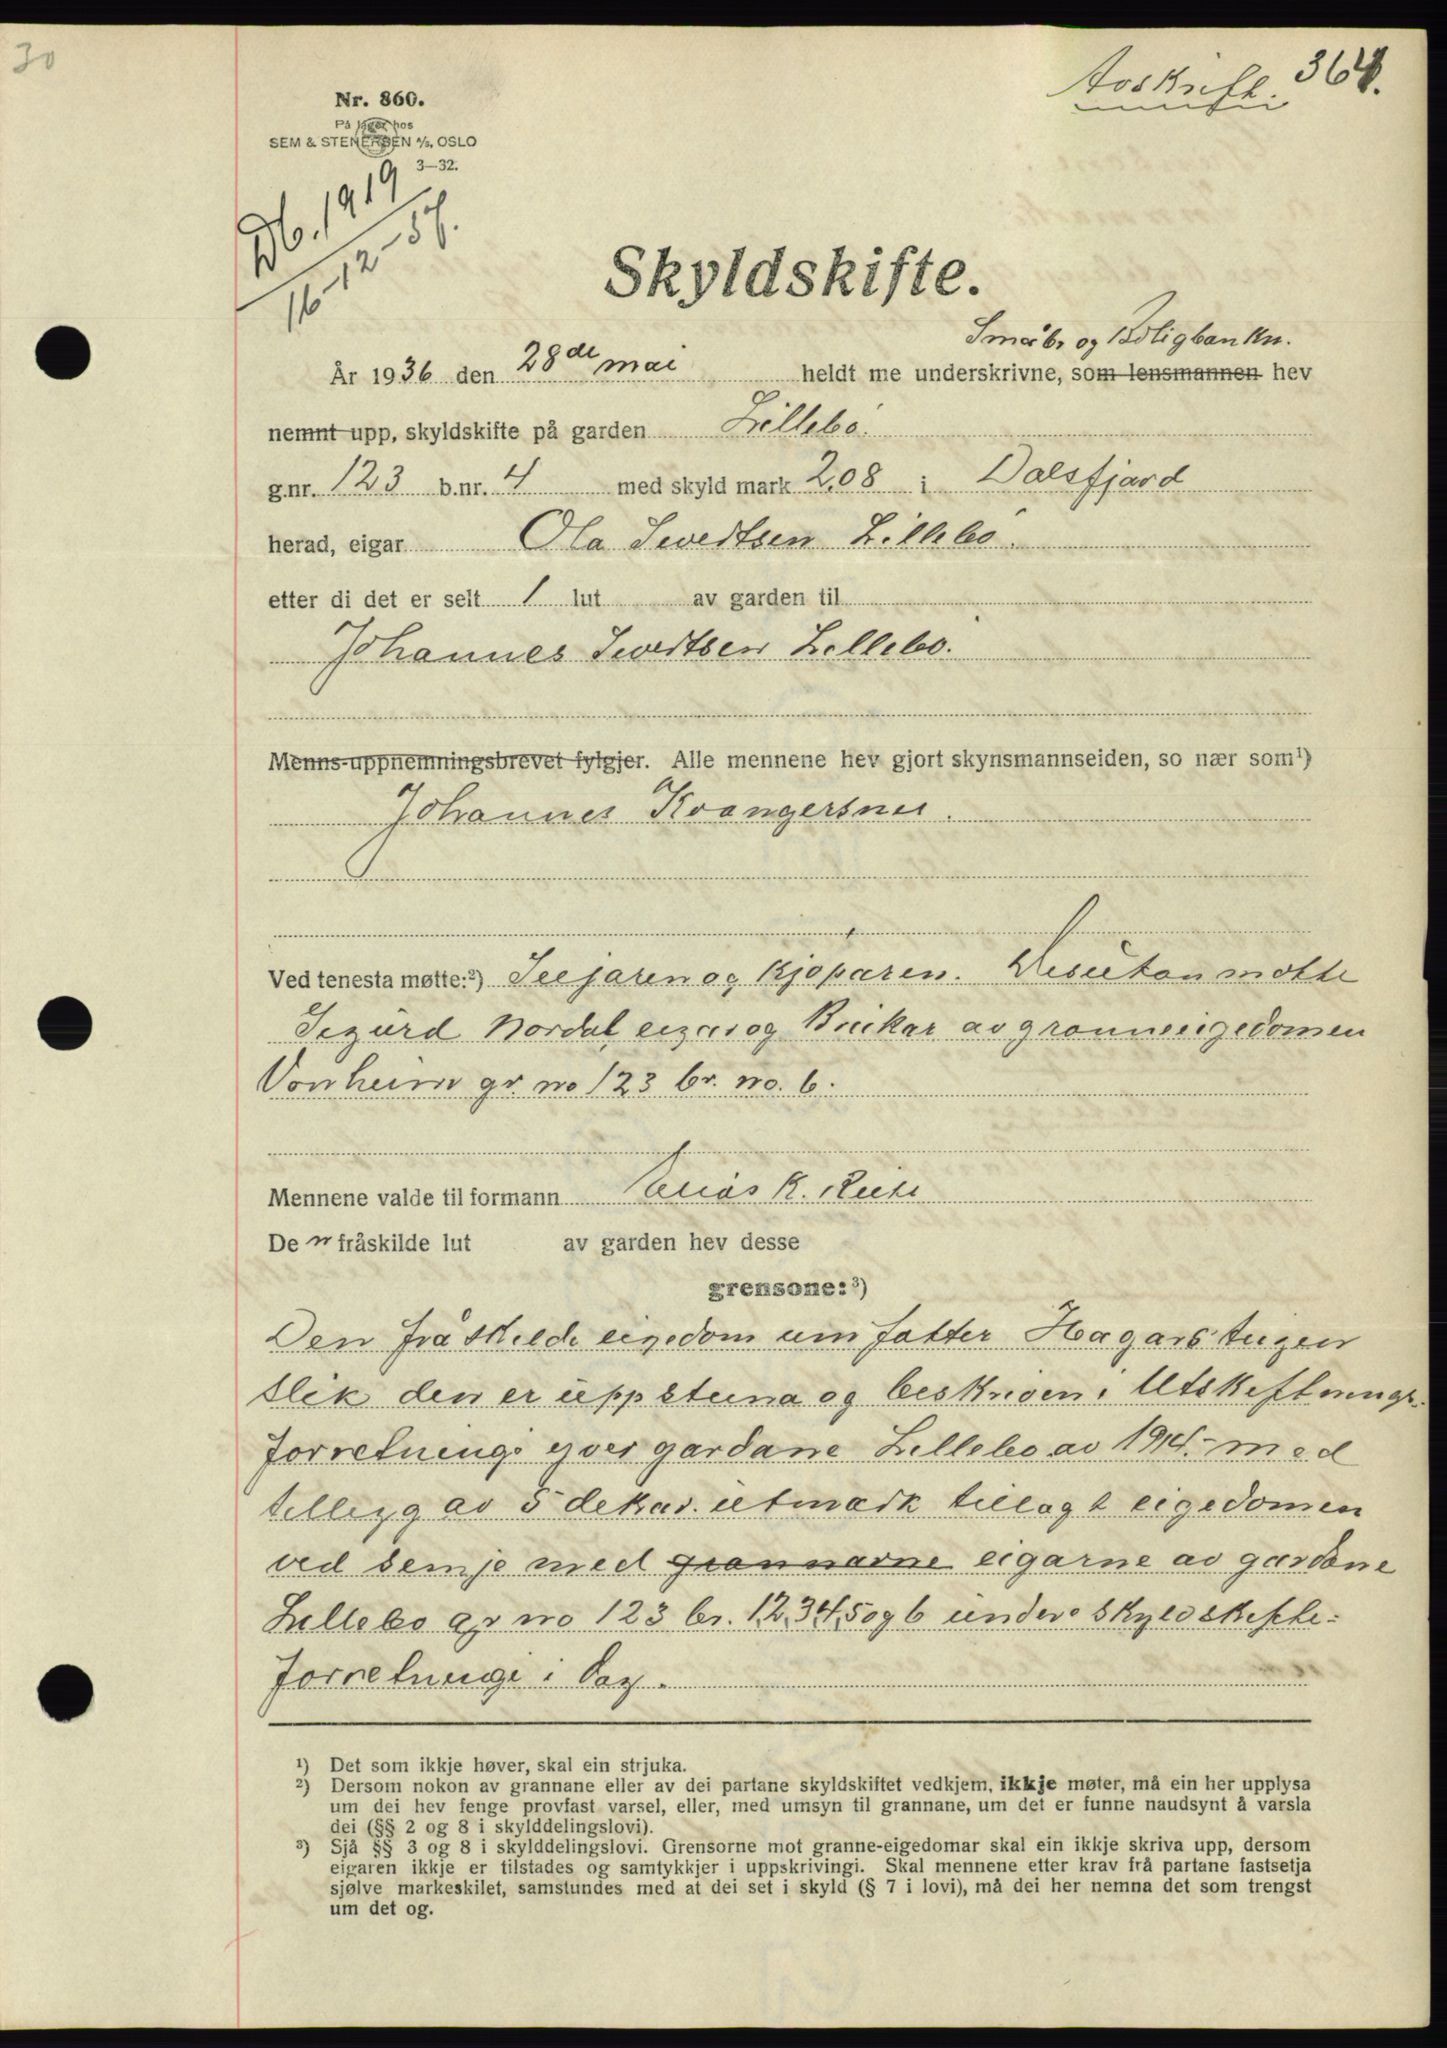 30
Avskrift. 364.
Nr. 860.
På lager hos
SEM & STENERSEN A/S, OSLO
3—32.
Db. 1919
16-12-37.
Skyldskifte.
Småbr og Boligbankn.
År 1936 den 28de mai heldt me underskrivne, som lensmannen hev
nemnt upp, skyldskifte på garden Lillebö.
g.nr. 123 b.nr. 4 med skyld mark 2,08 i Dalsfjord
herad, eigar Ola Severtsen Lillebö.
etter di det er selt 1 lut av garden til
Johannes Severtsen Lillebö.
Menns-uppnemningsbrevet fylgjer. Alle mennene hev gjort skynsmannseiden, so nær som¹)
Johannes Kvangersnes.
Ved tenesta møtte:²) Seljaren og kjöparen. Desutan møtte
Sigurd Nordal eigar og Brukar av granneeigedomen
Vonheim gr. no 123 br. no. 6.
Mennene valde til formann Elias K. Reite
De n fråskilde lut av garden hev desse
grensone:³)
Den fråskilde eigedom umfatter Hagarsteigen
slik den er uppstuna og beskriven i Utskiftnings-
forretning yver gardane Lillebö av 1914.- med
tillegg av 5 dekar. utmark tillagt eigedomen
ved semje med grannarne eigarne av gardane
Lillebö gr no 123 br. 1,2,3,4,5 og 6 under skyldskifte-
forretninge i dag.
¹) Det som ikkje høver, skal ein strjuka.
²) Dersom nokon av grannane eller av dei partane skyldskiftet vedkjem, ikkje møter, må ein her upplysa
um dei hev fenge provfast varsel, eller, med umsyn til grannane, um det er funne naudsynt å varsla
dei (§§ 2 og 8 i skylddelingslovi).
³) Sjå §§ 3 og 8 i skylddelingslovi. Grensorne mot granne-eigedomar skal ein ikkje skriva upp, dersom
eigaren ikkje er tilstades og samtykkjer i uppskrivingi. Skal mennene etter krav frå partane fastsetja
sjølve markeskilet, samstundes med at dei set i skyld (§ 7 i lovi), må dei her nemna det som trengst
um det og.